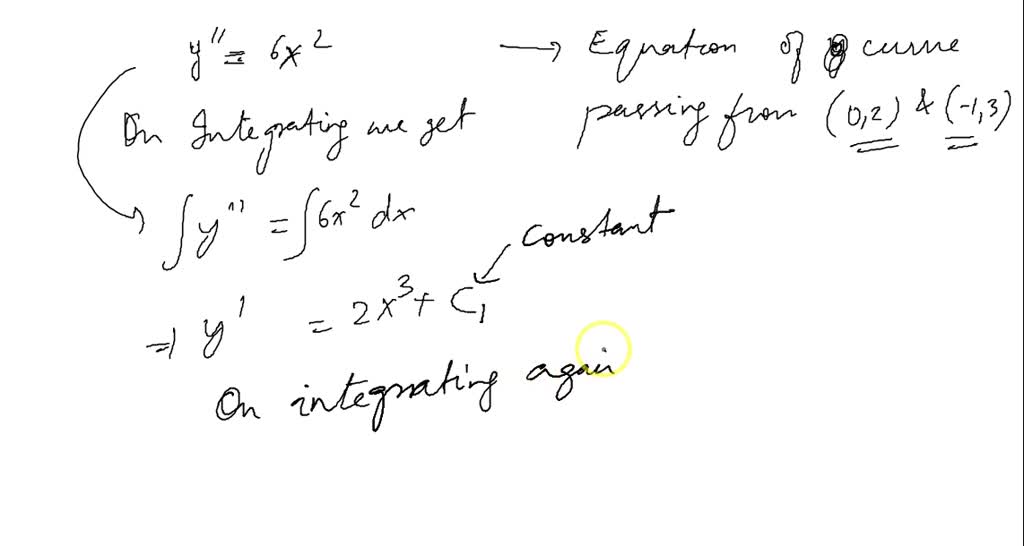 y'' = 6x² → Equation of curve
passing from (0,2) & (-1,3)
On Integrating we get
∫y'' = ∫6x² dx
constant
⇒ y' = 2x³ + C₁
On integrating again